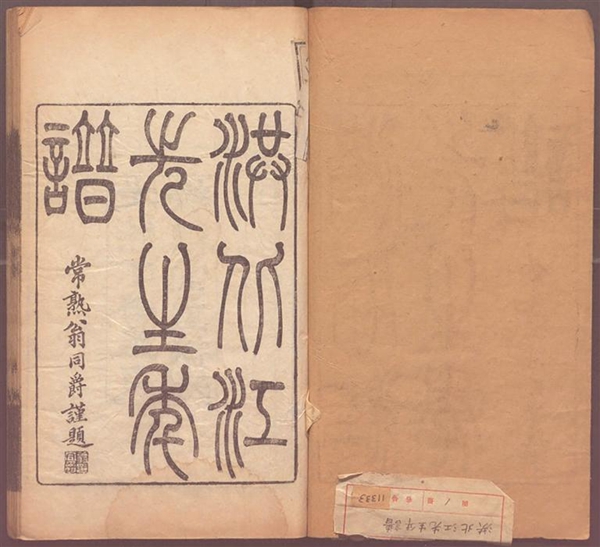 洪北江
先生年
譜
常熟翁同爵謹題
洪北江先生年譜
11333